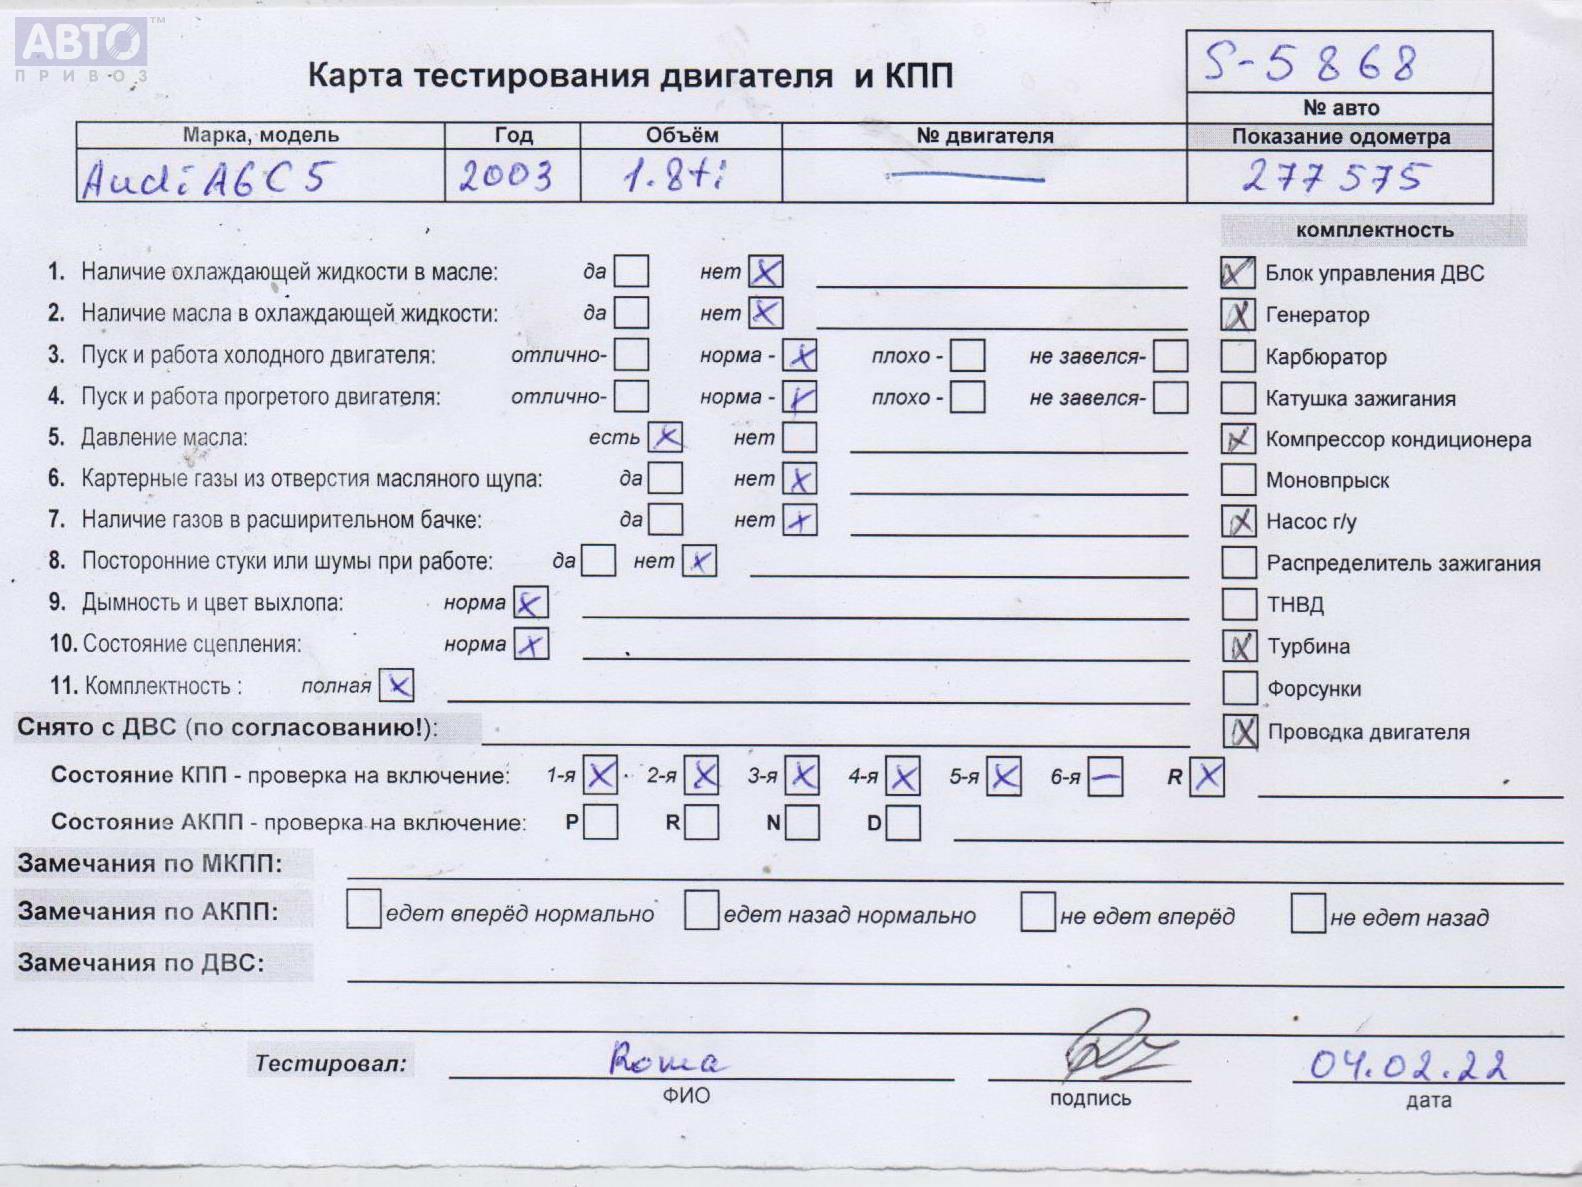 АВТО™
ПРИВОЗ
Карта тестирования двигателя и КПП
S-5868
№ авто
Марка, модель Год Объём № двигателя Показание одометра
Audi A6C5 2003 1.8ti — 277575
комплектность
1. Наличие охлаждающей жидкости в масле: да нет X
Блок управления ДВС
2. Наличие масла в охлаждающей жидкости: да нет X
Генератор
3. Пуск и работа холодного двигателя: отлично- норма - X плохо - не завелся-
Карбюратор
4. Пуск и работа прогретого двигателя: отлично- норма - плохо - не завелся-
Катушка зажигания
5. Давление масла: есть X нет
Компрессор кондиционера
6. Картерные газы из отверстия масляного щупа: да нет X
Моновпрыск
7. Наличие газов в расширительном бачке: да нет X
Насос г/у
8. Посторонние стуки или шумы при работе: да нет X
Распределитель зажигания
9. Дымность и цвет выхлопа: норма X
ТНВД
10. Состояние сцепления: норма X
Турбина
11. Комплектность : полная X
Форсунки
Снято с ДВС (по согласованию!):
Проводка двигателя
Состояние КПП - проверка на включение: 1-я X 2-я X 3-я X 4-я X 5-я X 6-я — R X
Состояние АКПП - проверка на включение: P R N D
Замечания по МКПП:
Замечания по АКПП: едет вперёд нормально едет назад нормально не едет вперёд не едет назад
Замечания по ДВС:
Тестировал: Roma 04.02.22
ФИО подпись дата